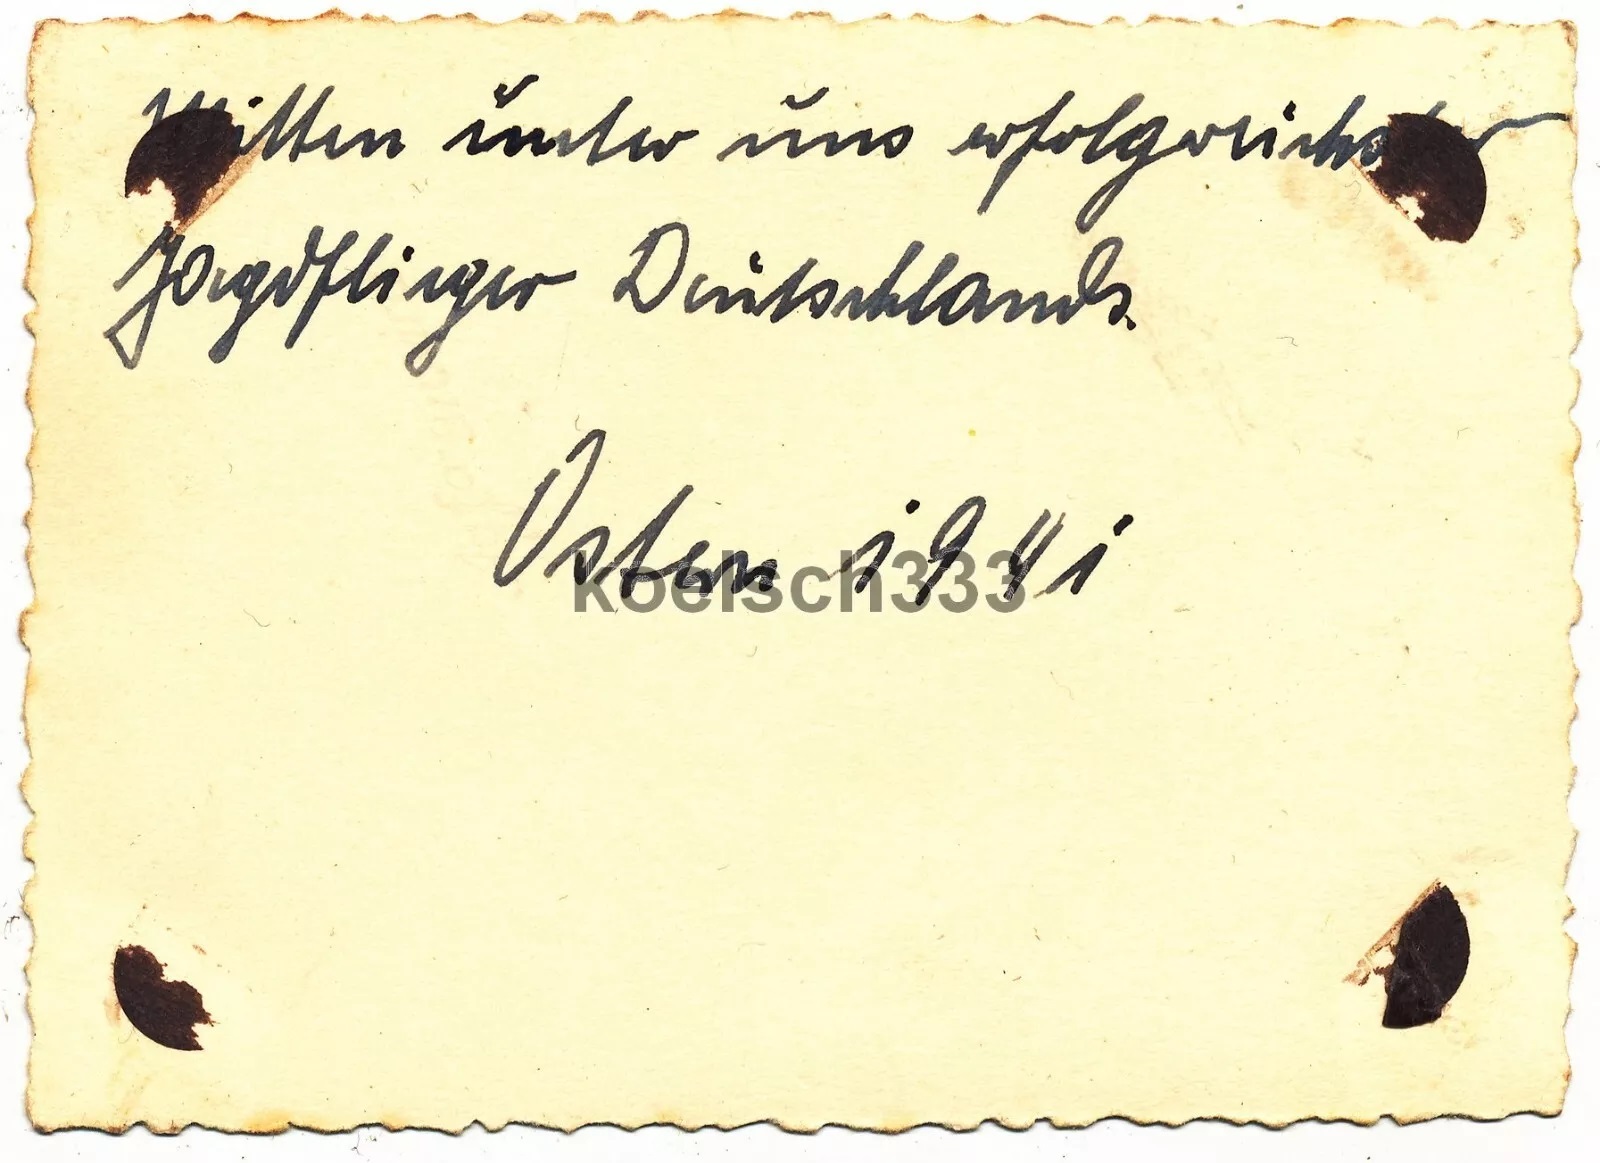 Mitten unter uns erfolgreichster
Jagdflieger Deutschlands.
Osten 1941
koelsch333